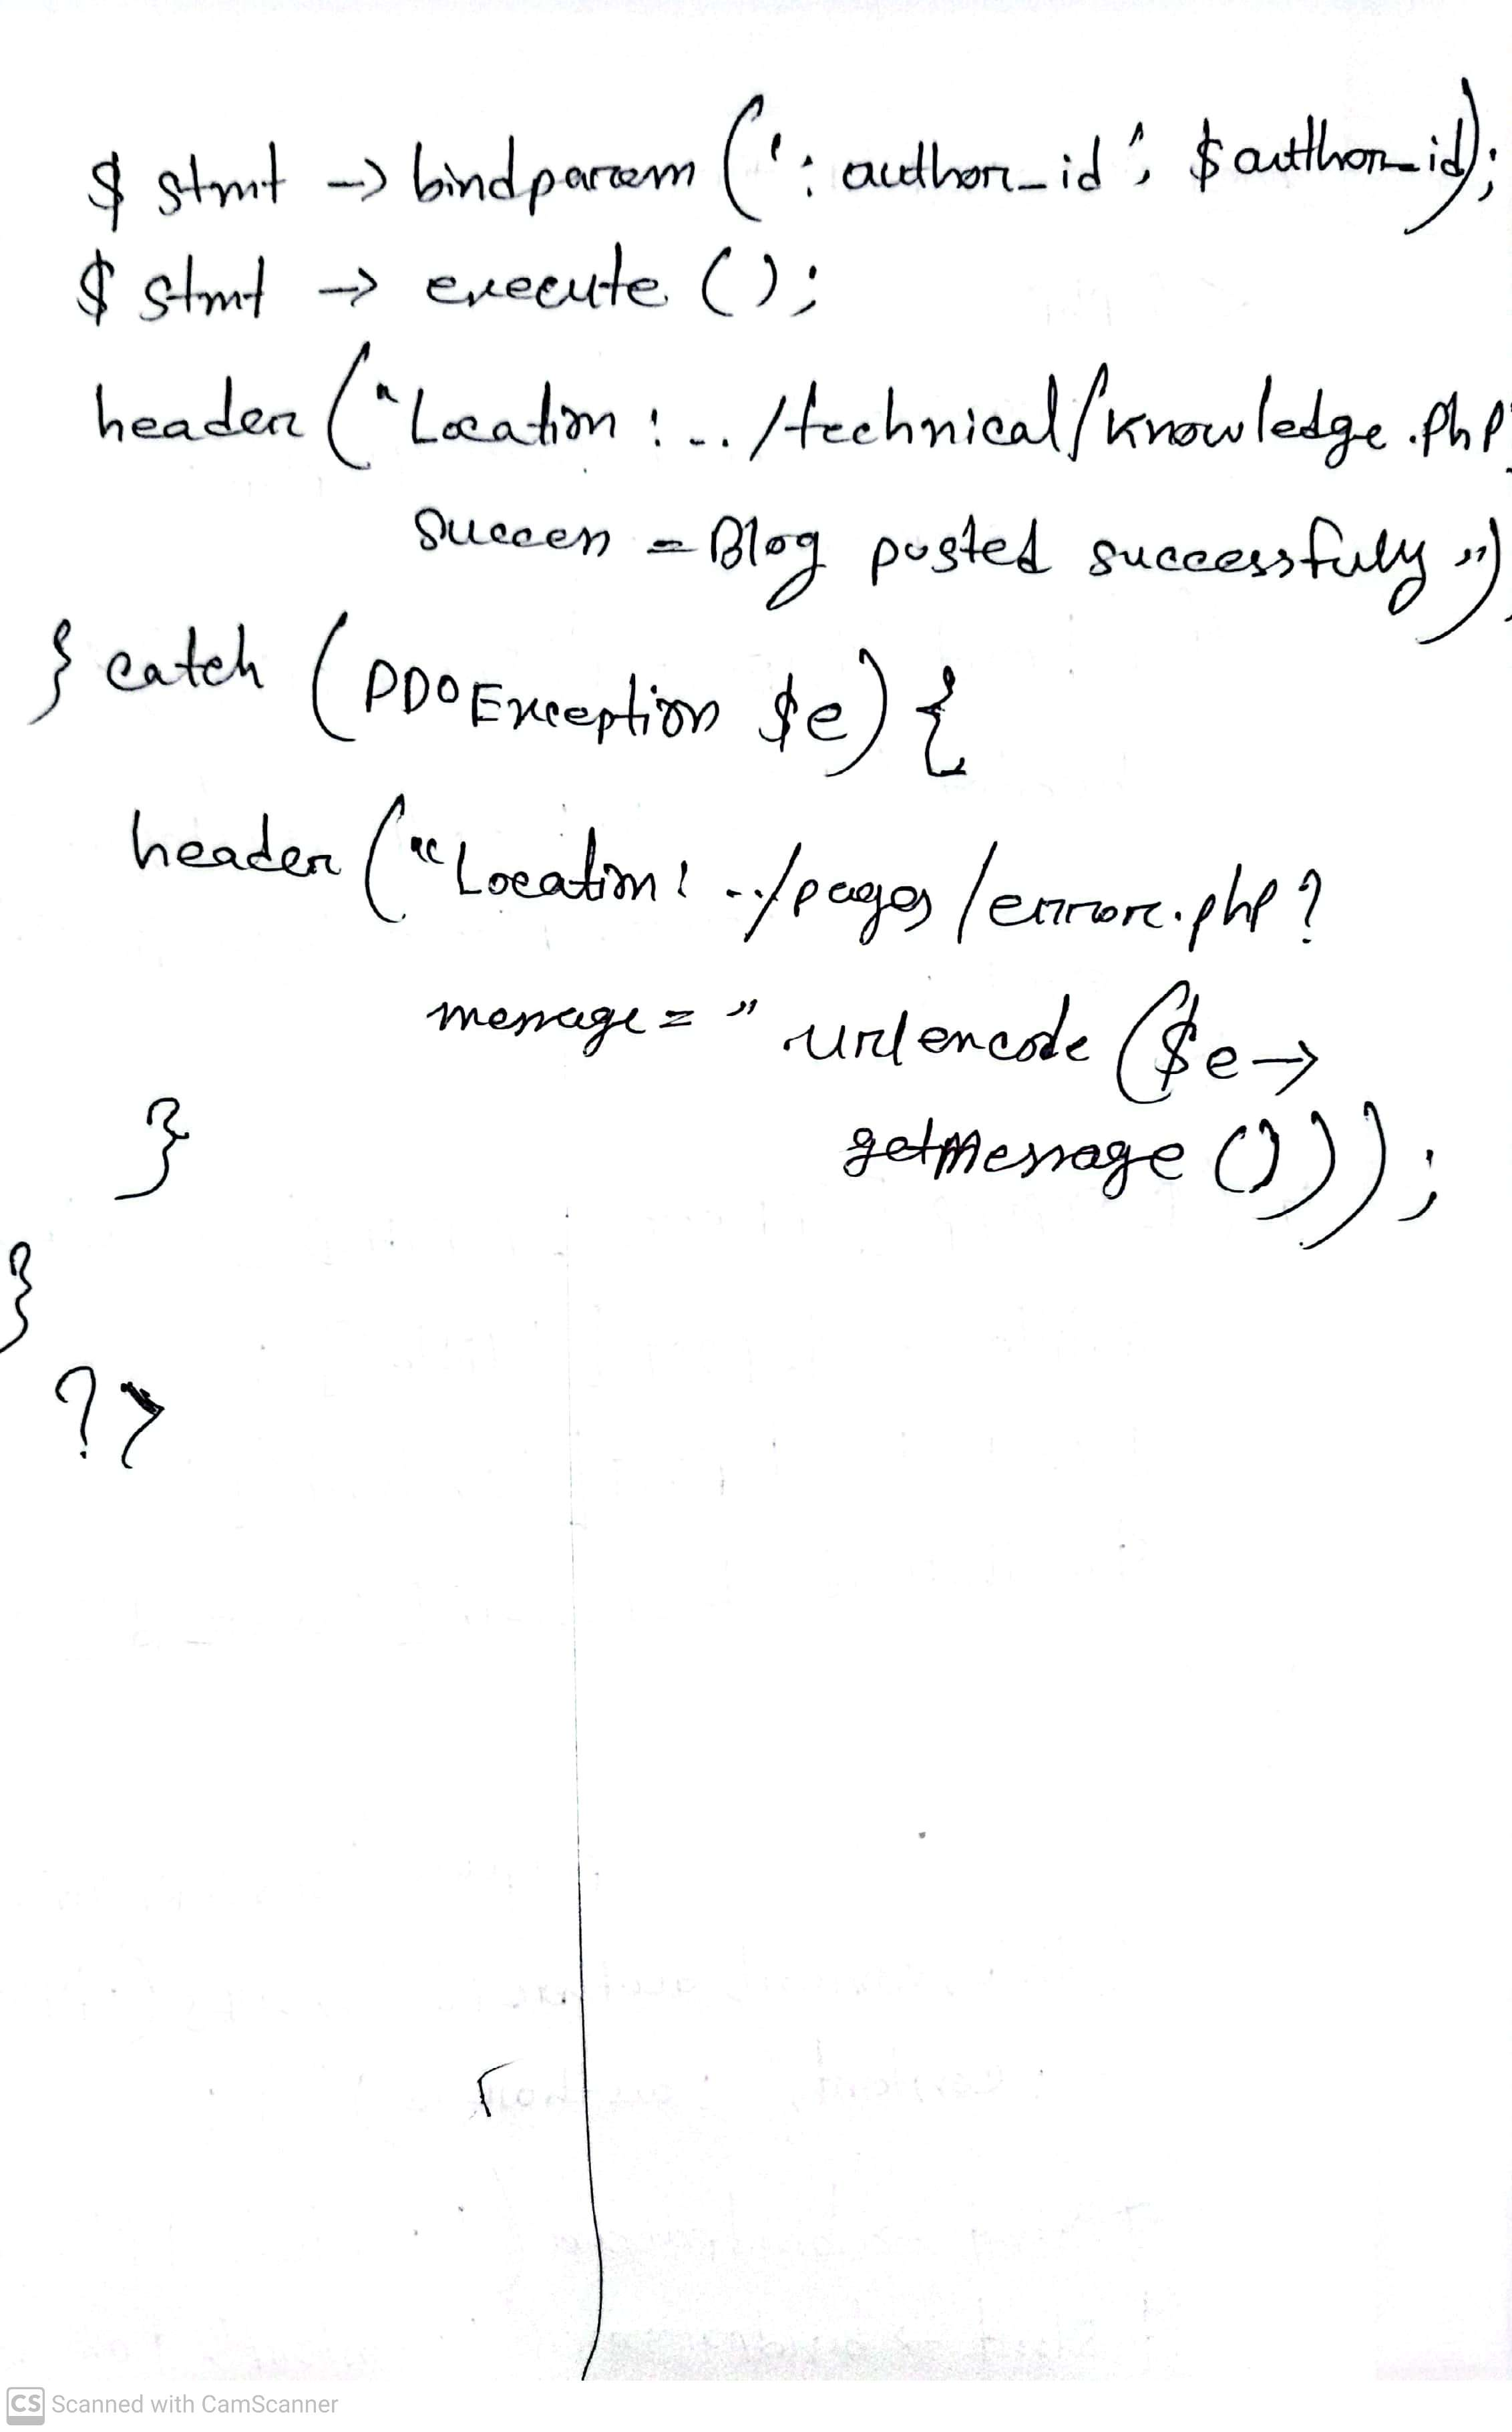 $ stmt -> bindparam (':author_id', $author_id);
$ stmt -> execute ();
header ("Location: ../technical/knowledge.php
success = Blog posted successfully")
} catch (PDOException $e) {
header ("Location: ../pages/error.php?
message = " urlencode ($e->
getMessage ()));
}
}
?>
CS Scanned with CamScanner